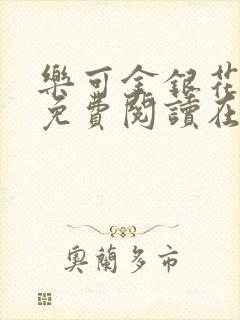 樂可金銀花
免費閱讀在
奧蘭多市